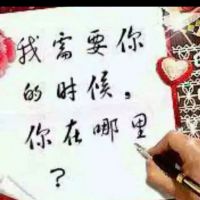 我需要你
的时候，
你在哪里
？